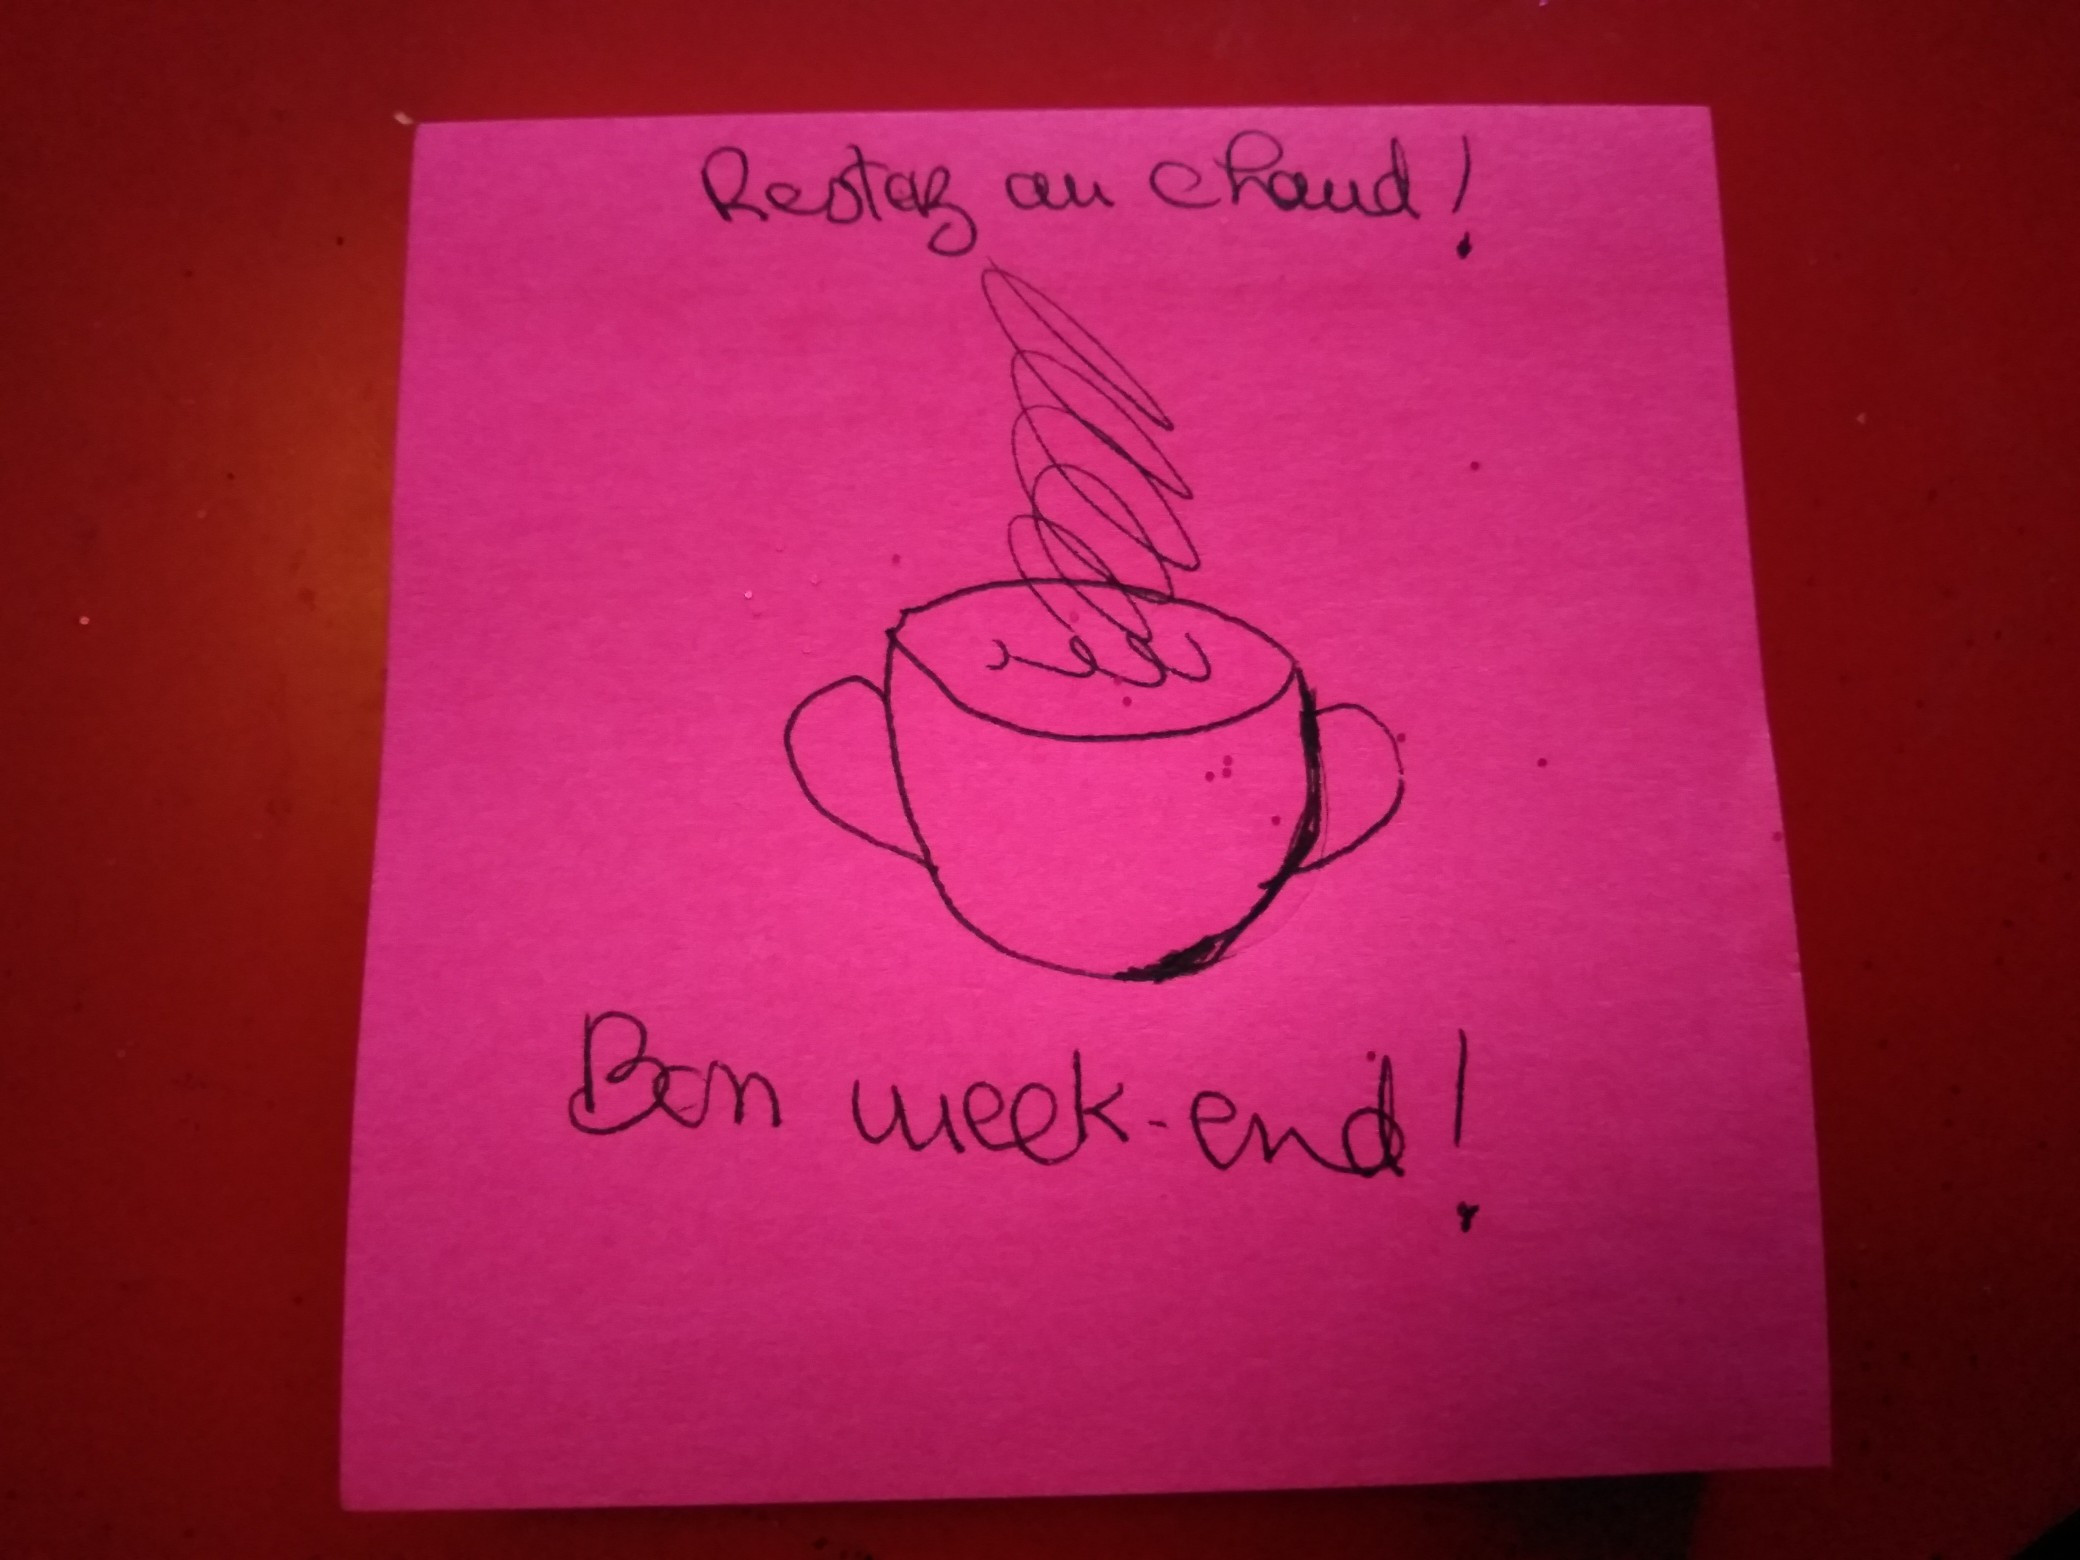 Restez au chaud !
Bon week-end !